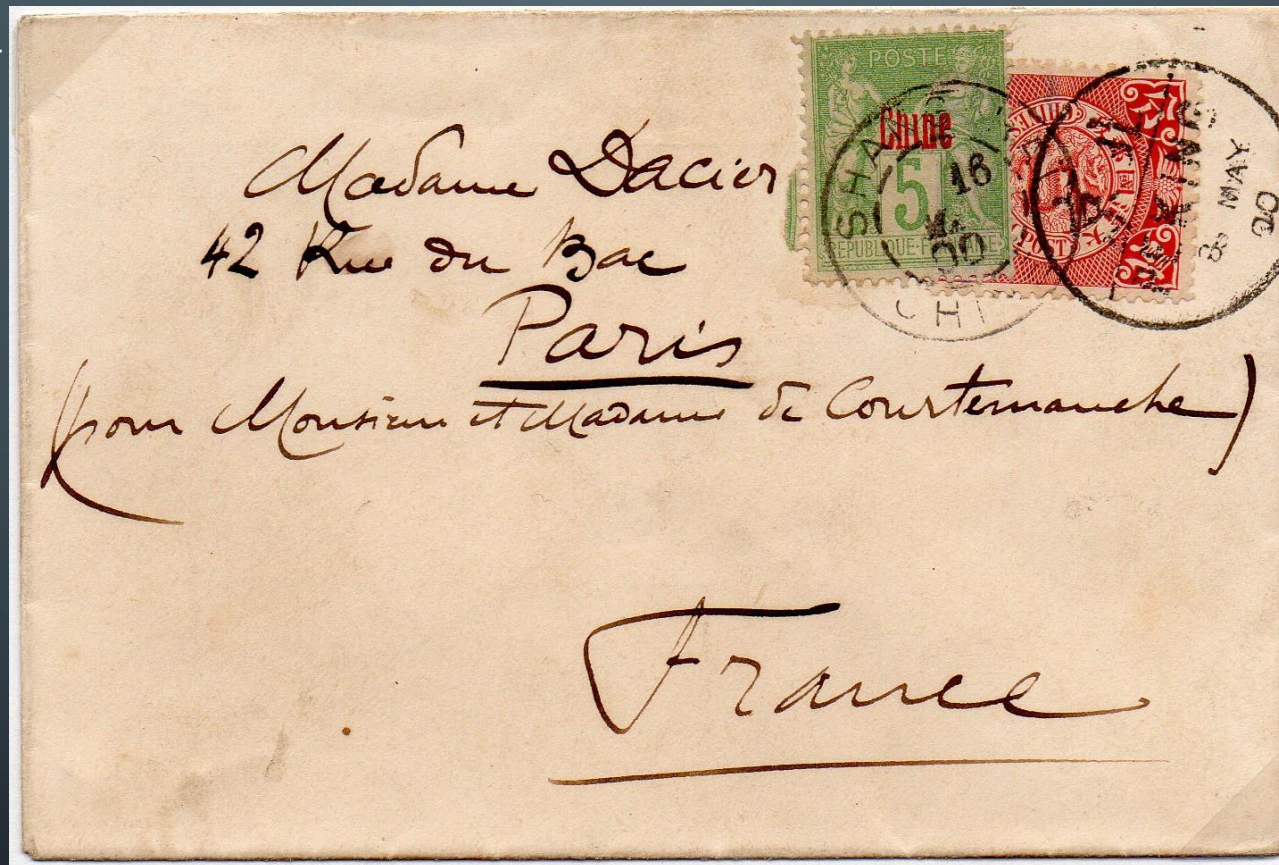 Madame Dacier
42 Rue du Bac
Paris
(pour Monsieur et Madame de Courtemanche)
France
POSTE
Chine
5
REPUBLIQUE
SHA
16
00
CHI
CHINES
POST
8 MAY
00